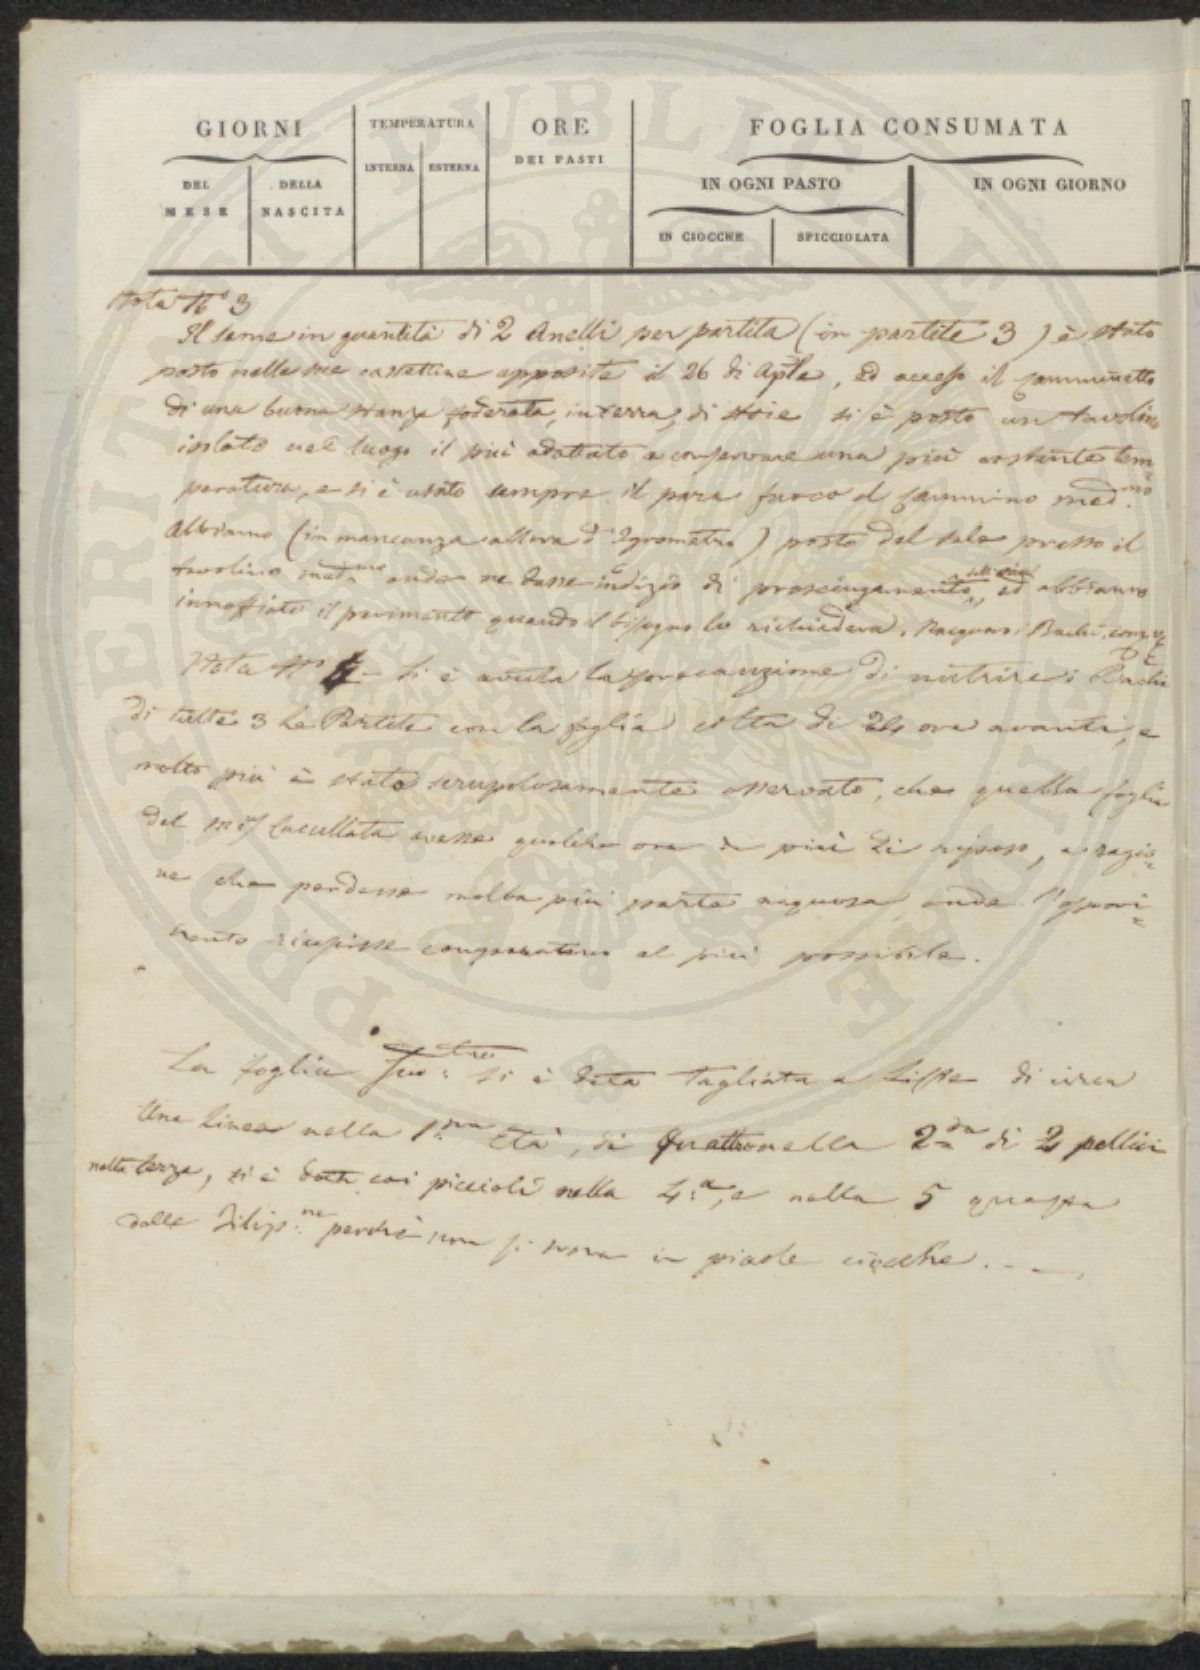 GIORNI
DEL MESE
DELLA NASCITA
TEMPERATURA
INTERNA
ESTERNA
ORE
DEI PASTI
FOGLIA CONSUMATA
IN OGNI PASTO
IN CIOCCHE
SPICCIOLATA
IN OGNI GIORNO
Nota N.º 3
Il seme in quantità di 2 Anelli per partita (in partite 3) è stato
posto nelle sue cassettine apposite il 26 di Aple, ed acceso il camminetto
di una buona stanza foderata, in terra, di stoie si è posto un tavolino
isolato nel luogo il più adattato a conservare una più costante tem=
peratura, e si è usato sempre il para fuoco al cammino med.mo
Abbiamo (in mancanza allora d'Igrometro) posto del sale presso il
tavolino med.mo onde ne dasse indizio di prosciugamento, ed abbiamo
innaffiato il pavimento quando il bisogno lo richiedeva. Nacquero i Bachi
Nota N.º - Si è avuta la precauzione di nutrire i Bachi
di tutte 3 Le Partite con la foglia colta di 24 ore avanti, e
molto più è stato scrupolosamente osservato, che quella foglia
del avesse qualche ora di più di riposo, a ragio=
ne che perdesse molta più parte acquosa, onde l'esperi=
mento riescisse comparativo al più possibile.
La foglia si è data Tagliata a Liste di circa
Una linea nella 1.ma Età, di Quattro nella 2.da di 2 pollici
nella terza, si è data coi piccioli nella 4.a, e nella 5 questa
delle Filip.ne perché non si trova in piccole ciocche.